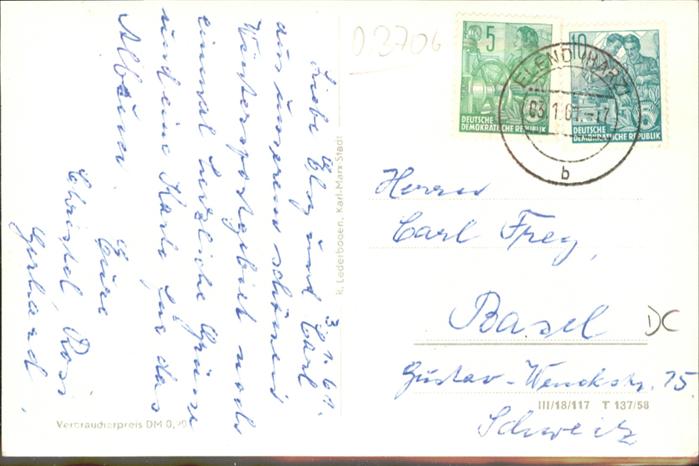 3.1.61.
Liebe Elly und Carl
aus unserem schönen
Wintersportgebiet noch
einmal herzliche Grüße
und eine Karte für das
Album.
Eure
Christel, Rosi
Gerhard.
Verbraucherpreis DM 0,20
R. Lederbogen, Karl-Marx-Stadt
D3706
5
DEUTSCHE
DEMOKRATISCHE REPUBLIK
10
DEUTSCHE
DEMOKRATISCHE REPUBLIK
ELEND (HARZ)
03.1.61.-17
b
Herrn
Carl Frey,
Basel
DC
Gustav-Wenckstr. 75
III/18/117 T 137/58
Schweiz